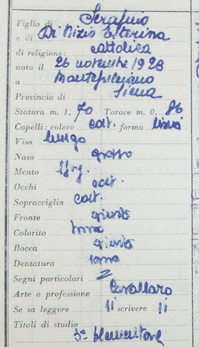 Figlio di Serafino
e di Di Nizio Esterina
di religione: cattolica
nato il 26 novembre 1928
a Montepulciano
Provincia di Siena
Statura m. 1, 70 Torace m. 0, 86
Capelli: colore cast. forma lisci
Viso lungo
Naso grosso
Mento
Occhi cast.
Sopracciglia cast.
Fronte giusta
Colorito
Bocca giusta
Dentatura sana
Segni particolari
Arte o professione
Se sa leggere si scrivere si
Titoli di studio
5ª elementare